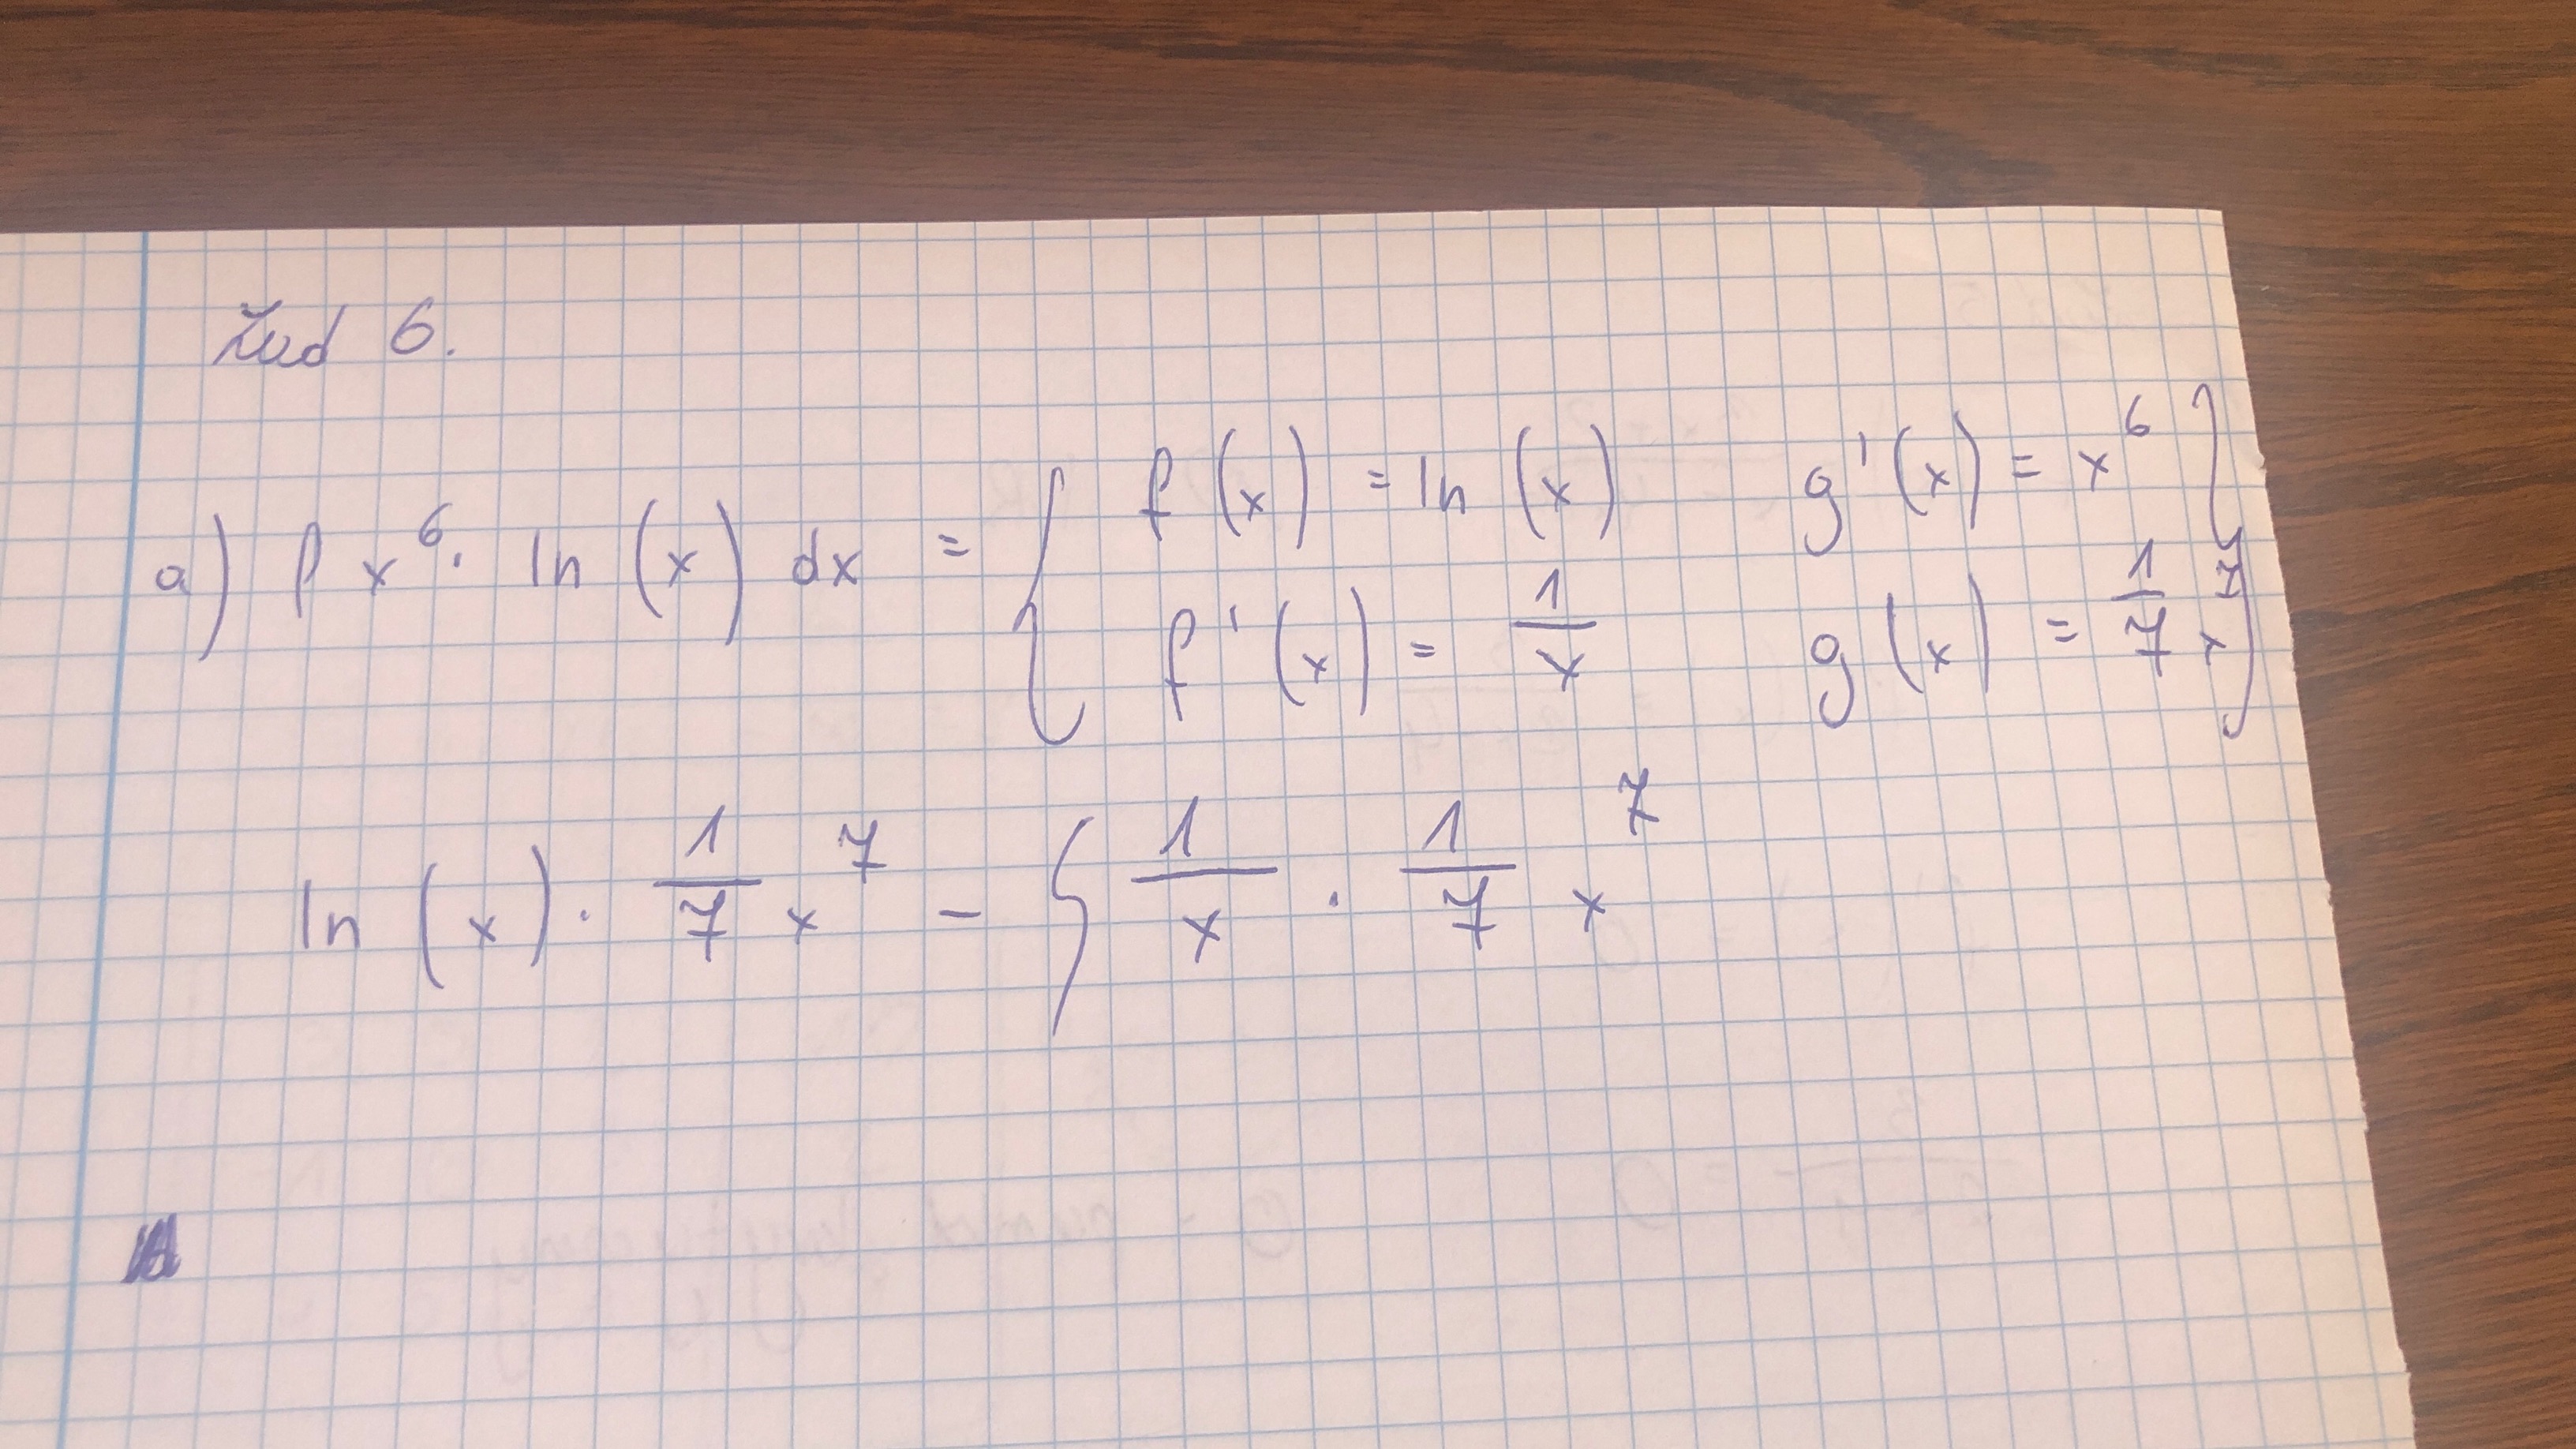 Zad 6.
a) ∫ x⁶ · ln (x) dx = { f (x) = ln (x) g' (x) = x⁶ }
{ f' (x) = 1/x g (x) = 1/7 x⁷ }
ln (x) · 1/7 x⁷ - ∫ 1/x · 1/7 x⁷